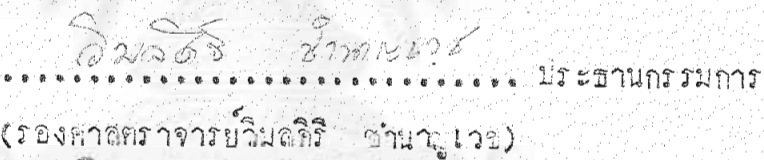 วิมลศิริ ชำนาญเวช
........................................ ประธานกรรมการ
(รองศาสตราจารย์วิมลศิริ ชำนาญเวช)